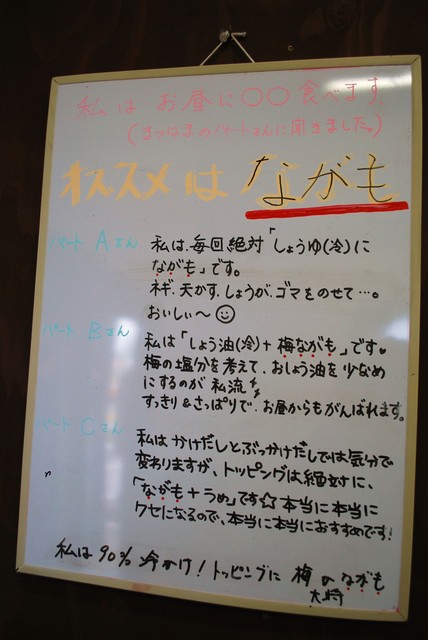 私は お昼に○○食べます。
(さっぱまのパートさんに聞きました。)
オススメは ながも
パート Aさん
私は、毎回絶対「しょうゆ(冷)に
ながも」です。
ネギ、天かす、しょうが、ゴマをのせて…。
おいしぃ〜☺
パート Bさん
私は「しょう油(冷)+梅ながも」です。
梅の塩分を考えて、おしょう油を少なめ
にするのが私流
すっきり&さっぱりで、お昼からもがんばれます。
パート Cさん
私はかけだしとぶっかけだしでは気分で
変わりますが、トッピングは絶対に、
「ながも+うめ」です☆本当に本当に
クセになるので、本当に本当におすすめです!
私は90%冷かけ!トッピングに 梅のながも
大将